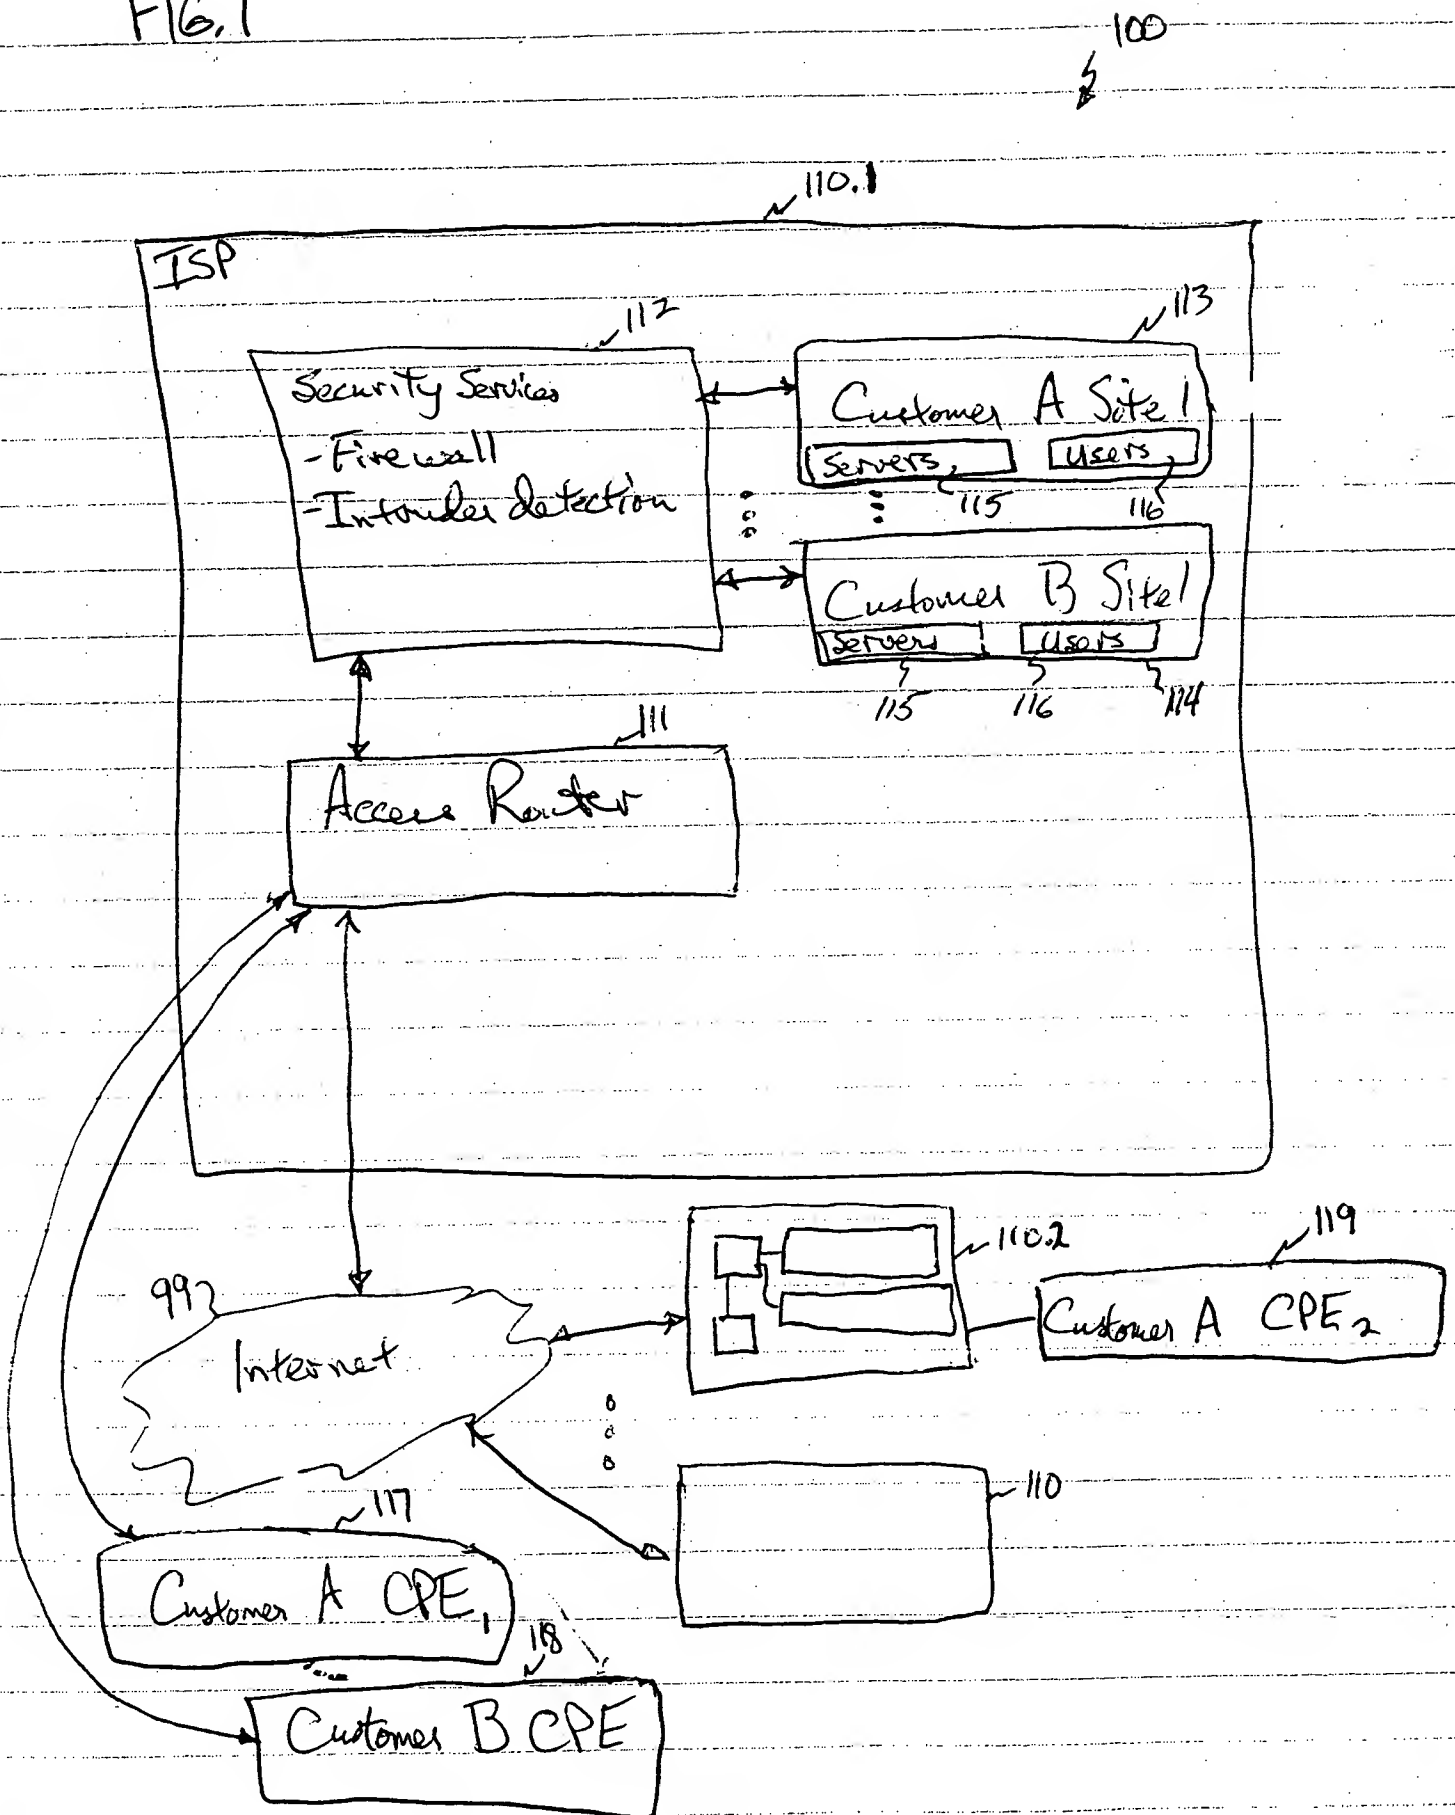 FIG. 1
100
110.1
ISP
112
113
Security Services
- Firewall
- Intruder detection
Customer A Site 1
Servers
Users
115
116
Customer B Site 1
Servers
Users
115
116
114
111
Access Router
110.2
119
Customer A CPE2
99
Internet
110
117
Customer A CPE1
118
Customer B CPE